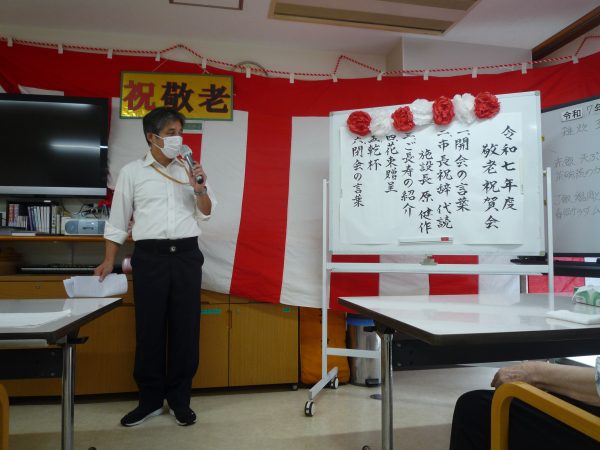 祝敬老
令和七年度
敬老祝賀会
一開会の言葉
二市長祝辞 代読
施設長 原 健作
三ご長寿の紹介
四花束贈呈
五乾杯
六閉会の言葉
令和 7年